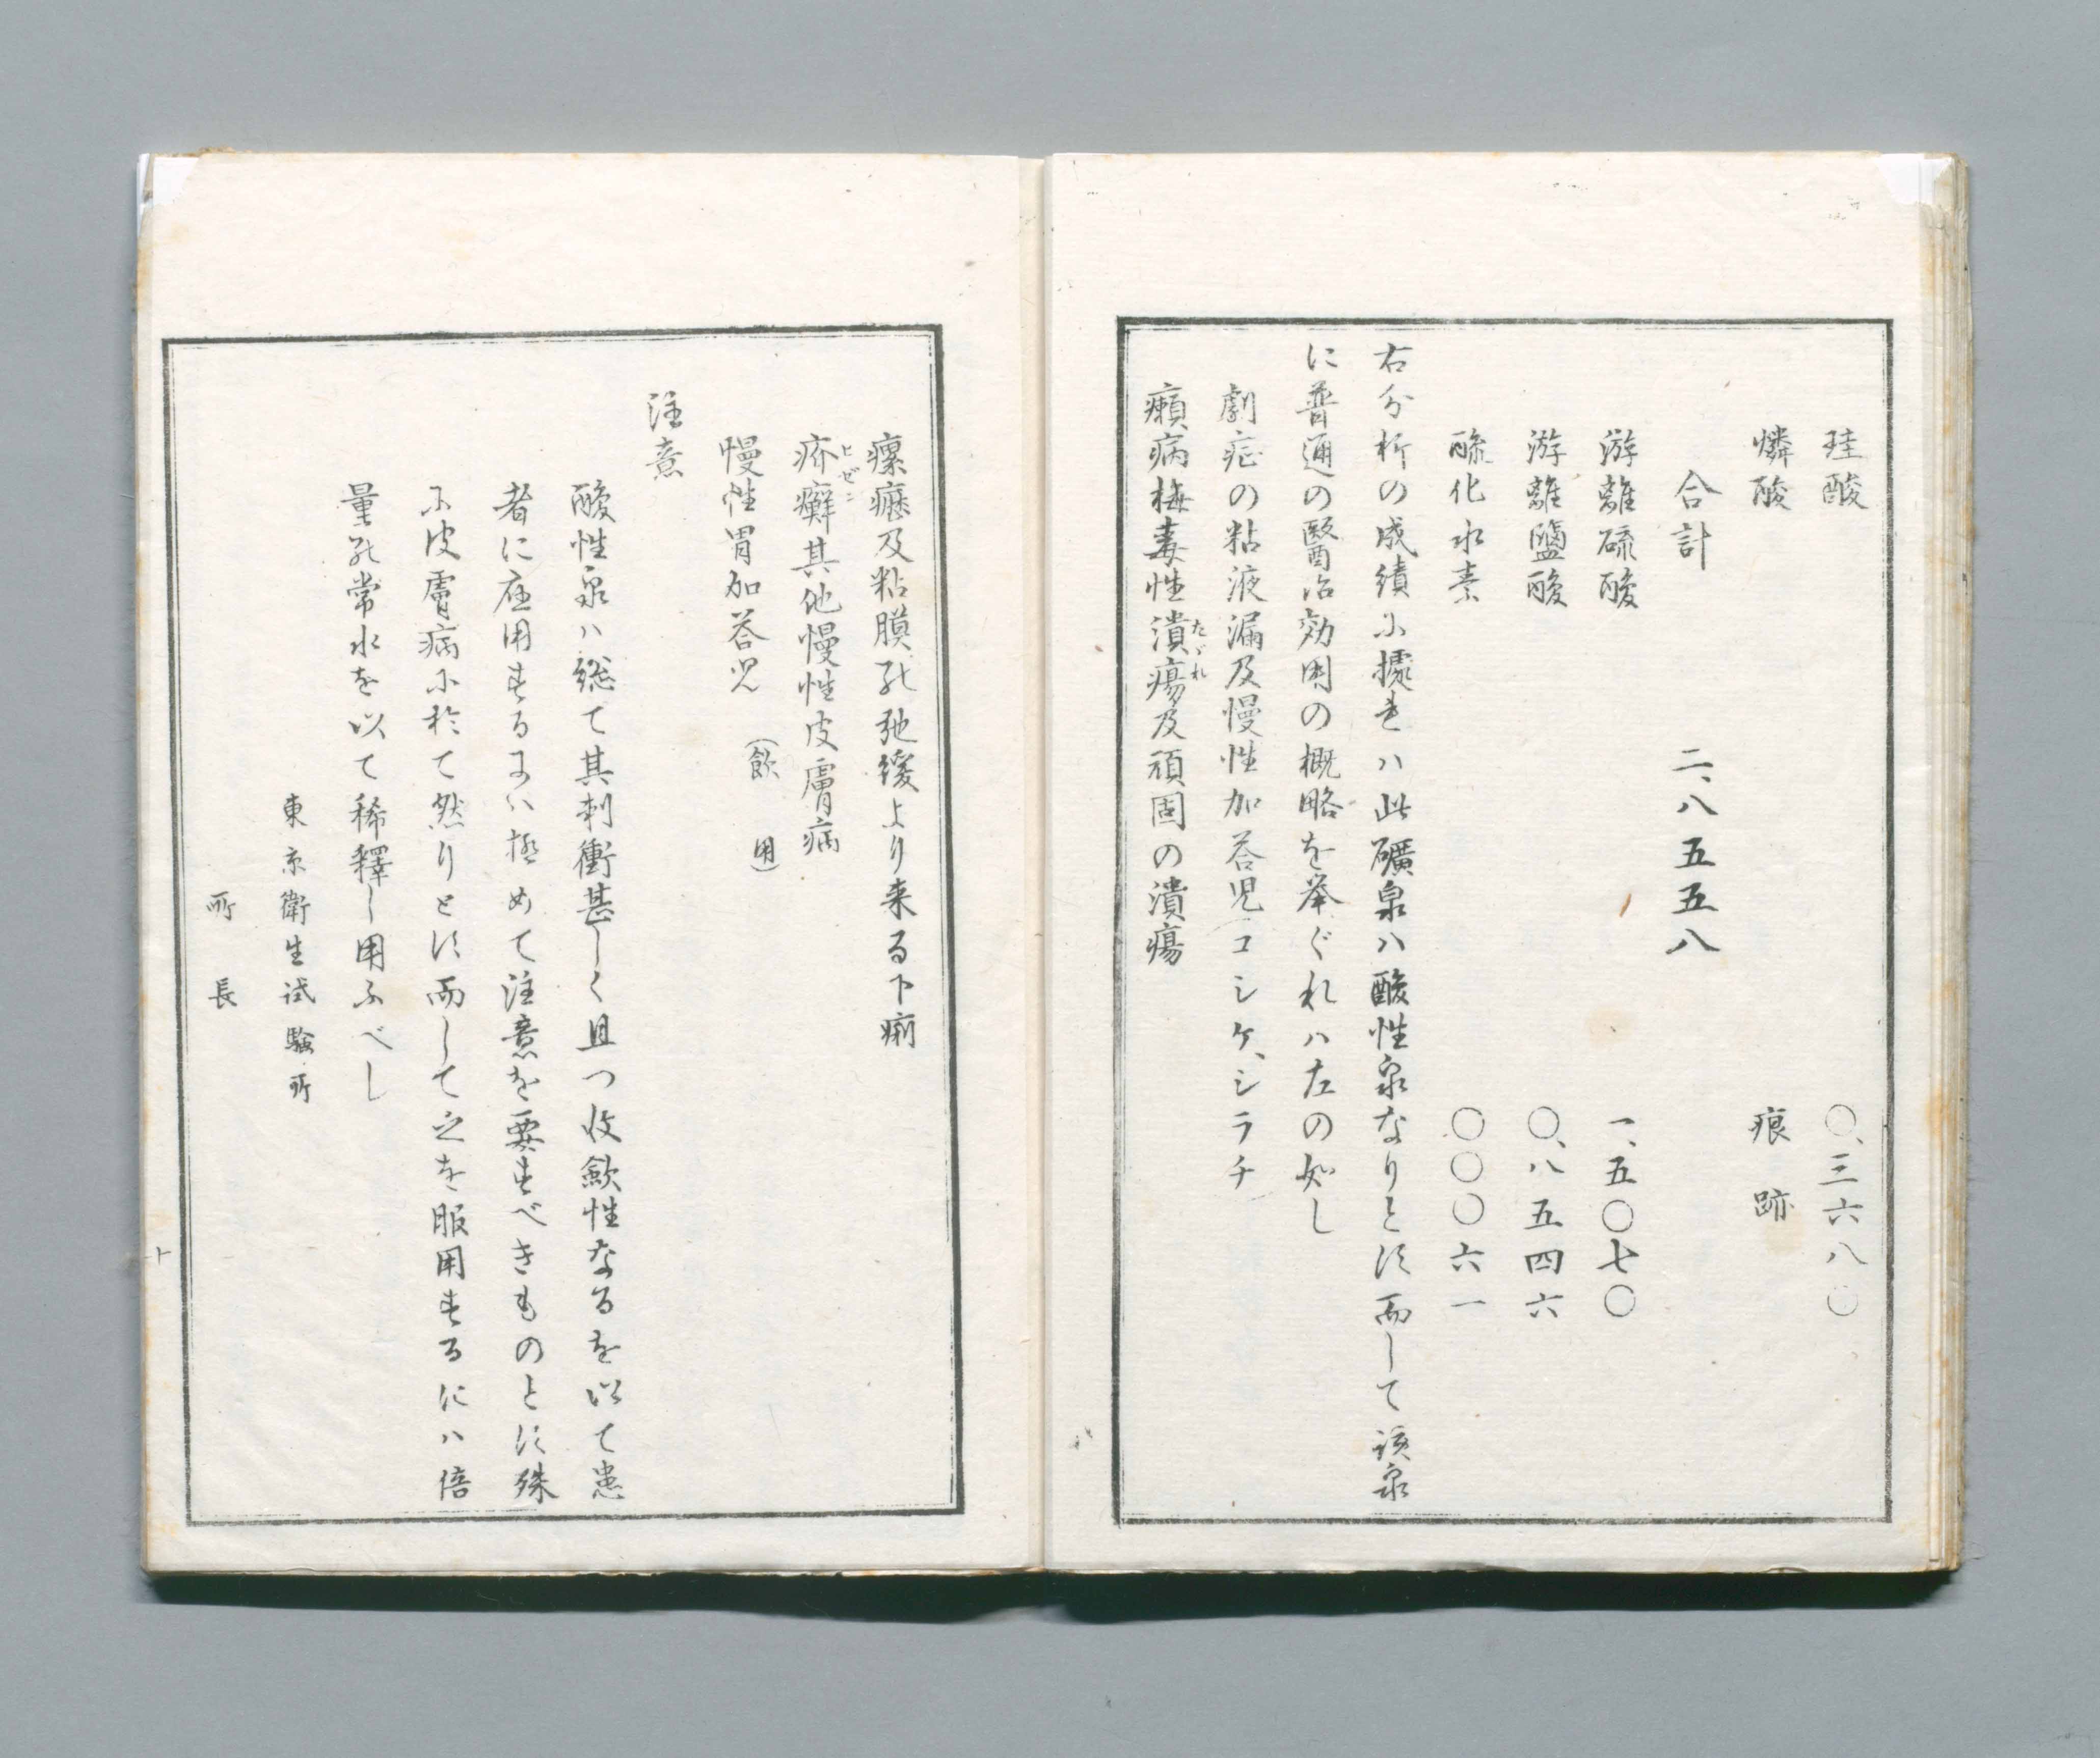 珪酸　〇、三六八〇
燐酸　痕跡
合計　二、八五五八
游離硫酸　一、五〇七〇
游離鹽酸　〇、八五四六
硫化水素　〇〇〇六一
右分析の成績に據れハ此礦泉ハ酸性泉なりとす而して該泉
に普通の醫治効用の概略を挙ぐれハ左の如し
劇症の粘液漏及慢性加荅児コシケ、シラチ
癩病梅毒性潰瘍及頑固の潰瘍
たゞれ
瘰癧及粘膜の弛緩より来る下痢
疥癬其他慢性皮膚病
ヒゼン
慢性胃加荅児　（飲用）
注意
酸性泉ハ総て其刺衝甚しく且つ收歛性なるを以て患
者に應用するにハ極めて注意を要すべきものとす殊
に皮膚病に於て然りとす而して之を服用するにハ倍
量の常水を以て稀釋し用ふべし
東京衛生試驗所
所長